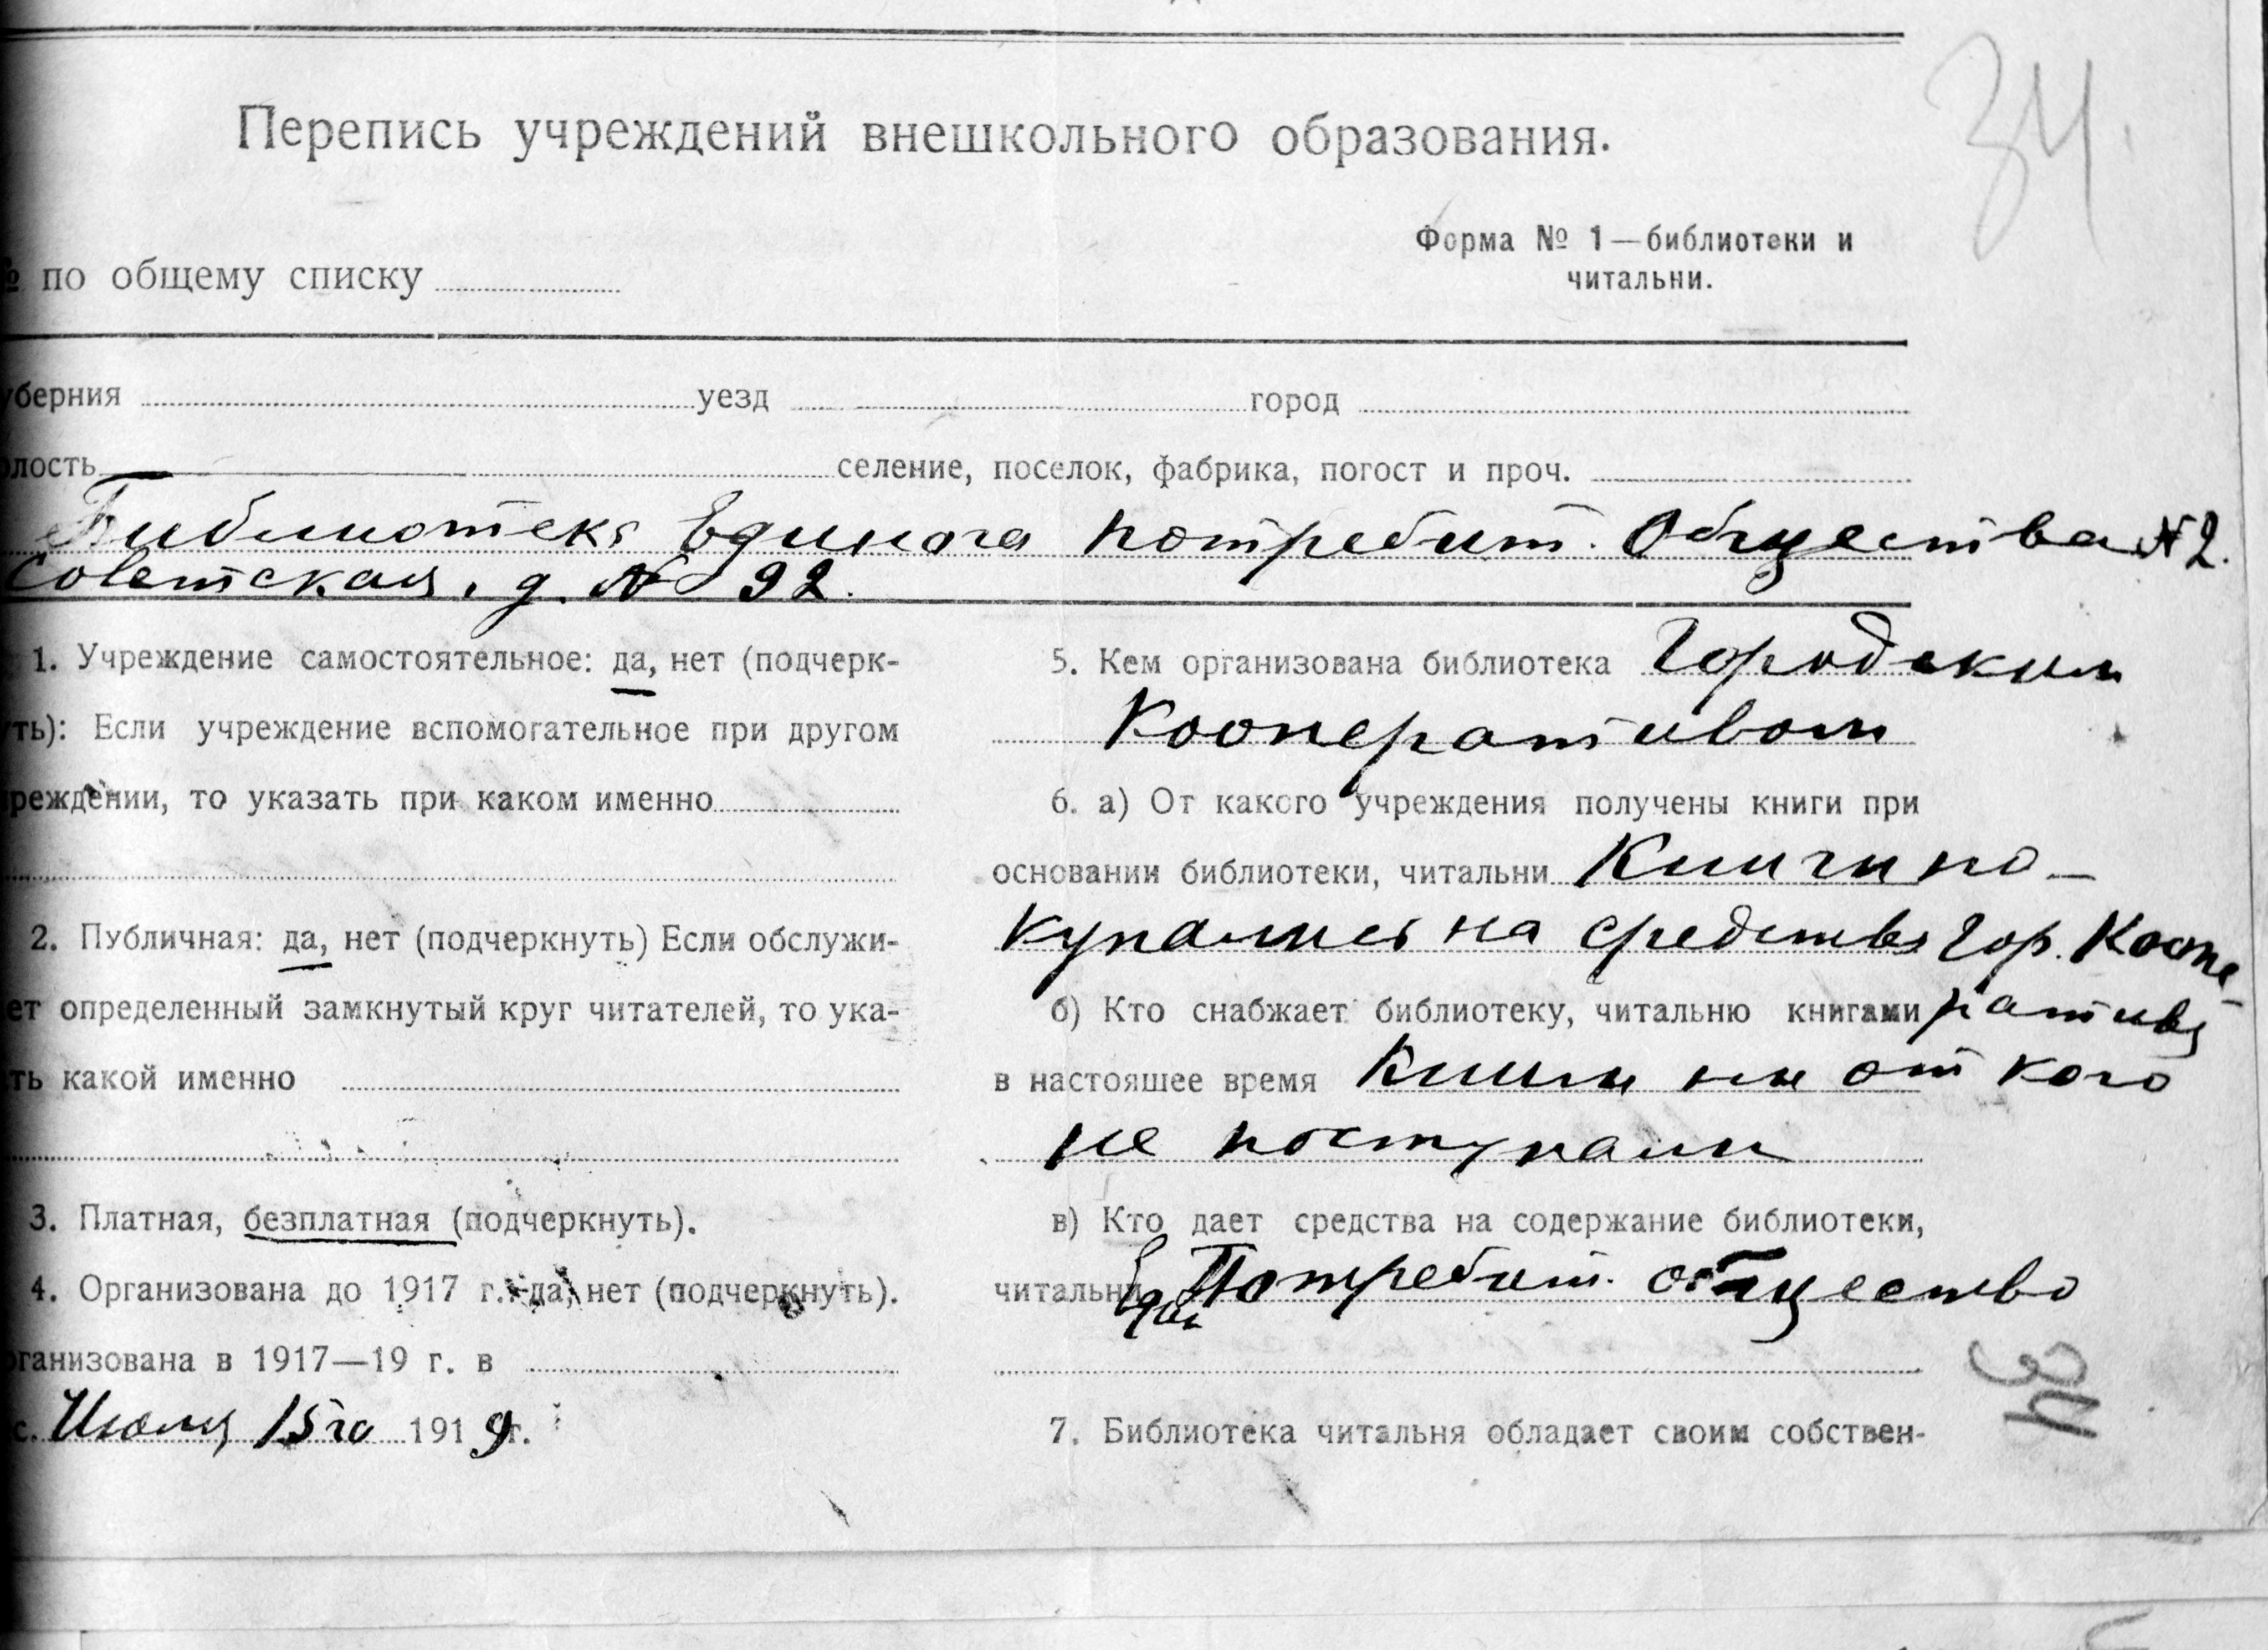 34.
Перепись учреждений внешкольного образования.
Форма № 1—библиотеки и
читальни.
№ по общему списку
уберния уезд город
олость селение, поселок, фабрика, погост и проч.
Библиотека Единого потребит. Общества № 2.
Советская, д. № 92.
1. Учреждение самостоятельное: да, нет (подчерк-
уть): Если учреждение вспомогательное при другом
реждении, то указать при каком именно
2. Публичная: да, нет (подчеркнуть) Если обслужи-
ет определенный замкнутый круг читателей, то ука-
ть какой именно
3. Платная, безплатная (подчеркнуть).
4. Организована до 1917 г.: да, нет (подчеркнуть).
рганизована в 1917—19 г. в
с. Июля 15го 1919 г.
5. Кем организована библиотека Городским
Кооперативом
6. а) От какого учреждения получены книги при
основании библиотеки, читальни Книги по-
купались на средства Гор. Коопе-
ратива
б) Кто снабжает библиотеку, читальню книгами
в настоящее время Книги ни от кого
не поступали
в) Кто дает средства на содержание библиотеки,
читальни Един. Потребит. общество
7. Библиотека читальня обладает своим собствен-
34